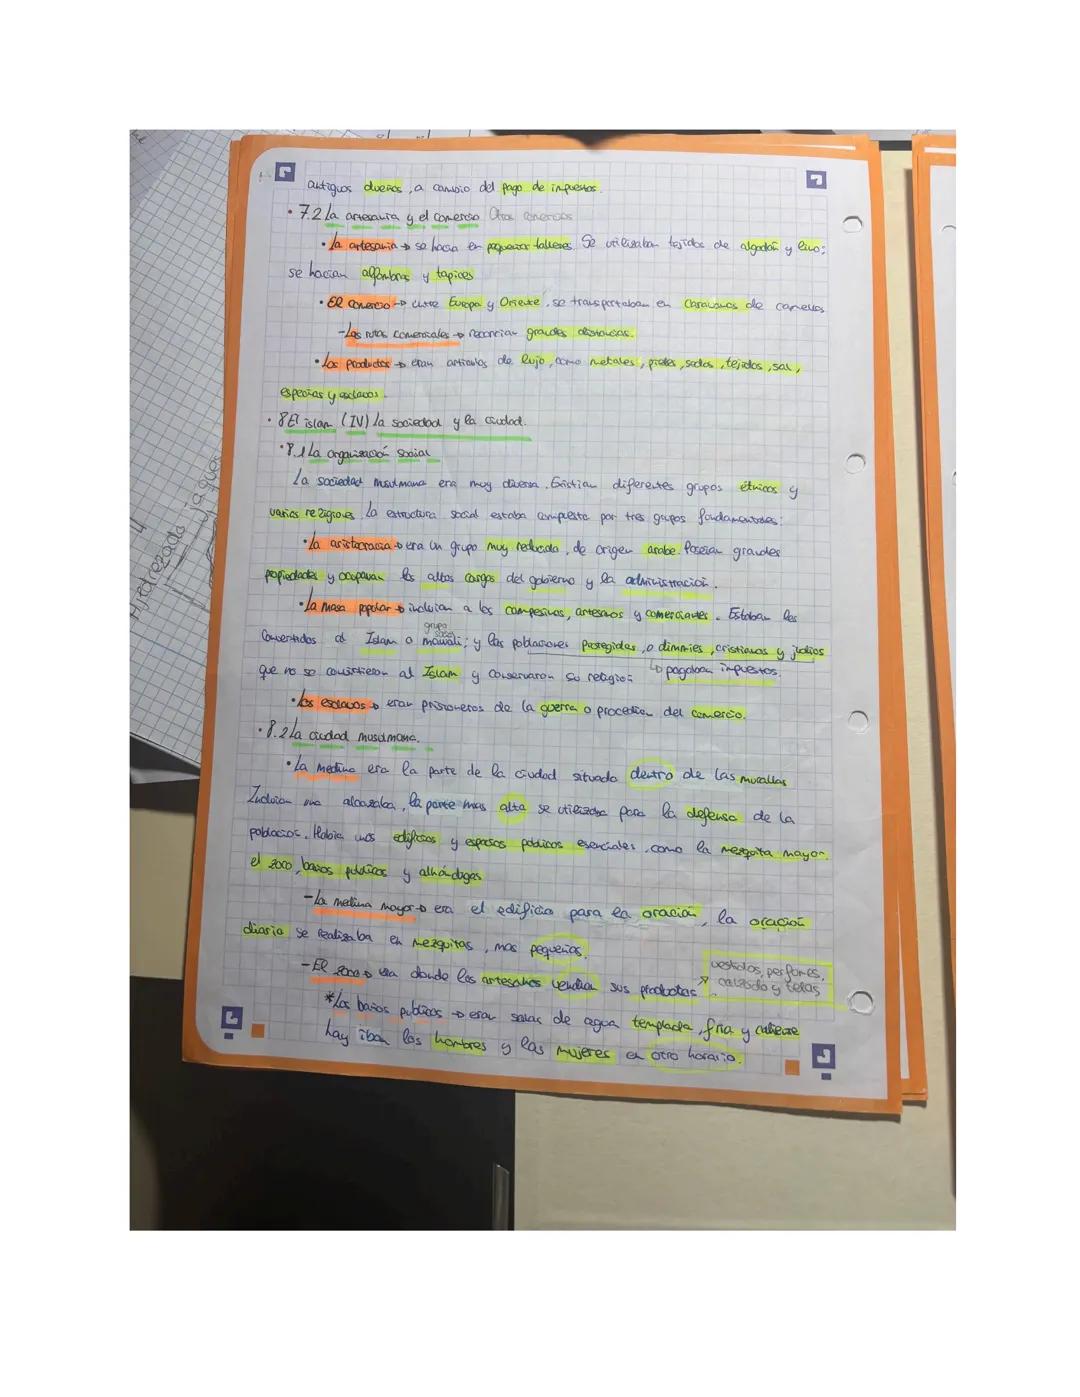 antiguos dueños, a cambio del pago de impuestos.
• 7.2 La artesanía y el comercio Otros comercios
• La artesanía → se hacia en pequeños talleres. Se utilizaban tejidos de algodón y lino;
se hacian alfombras y tapices
• El comercio → entre Europa y Oriente, se transportaban en caravanas de camellos
- Las rutas comerciales → recorrian grandes distancias.
• Los productos → eran articulos de lujo, como metales, pieles, sedas, tejidos, sal,
especias y esclavos.
• 8 El islam (IV) La sociedad y la ciudad.
• 8.1 La organización social
La sociedad musulmana era muy diversa. Existian diferentes grupos étnicos y
varias religiones La estructura social estaba compuesta por tres grupos fundamentales:
• La aristocracia → era un grupo muy reducido, de origen arabe. Poseian grandes
propiedades y ocupavan los altos cargos del gobierno y la administración.
• La masa popular → incluian a los campesinos, artesanos y comerciantes. Estaban los
grupo social
Convertidos al Islam o mawali; y las poblaciones protegidas, o dimmies, cristianos y judios
que no se convirtieron al Islam y conservaron su religion
↳ pagaban impuestos.
• Los esclavos → eran prisioneros de la guerra o procedian del comercio.
• 8.2 La ciudad musulmana.
• La medina era la parte de la ciudad situada dentro de las murallas
Incluian una alcazaba, la parte mas alta se utilizaba para la defensa de la
poblacion. Habia unos edificios y espacios públicos esenciales, como la mezquita mayor,
el zoco, baños publicos y alhóndigas
- La medina mayor → era el edificio para la oración, la oración
diaria se realizaba en mezquitas, mas pequeñas.
- El zoco → era donde los artesanos vendian sus productos
vestidos, perfumes,
calzado y telas
* Los baños publicos → eran salas de agua templada, fria y caliente
hay iban los hombres y las mujeres en otro horario.
Hydrezado y agues